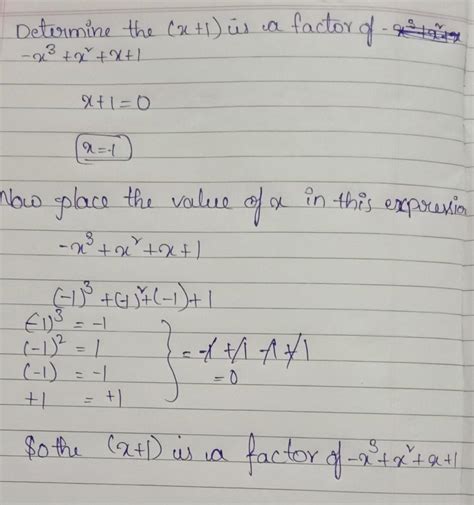 Determine the (x+1) is a factor of -x³+x²+x
-x³+x²+x+1
x+1=0
x=-1
Now place the value of x in this expression
-x³+x²+x+1
(-1)³+(-1)²+(-1)+1
(-1)³ = -1
(-1)² = 1
(-1) = -1
+1 = +1
= -1 +1 -1 +1
= 0
So the (x+1) is a factor of -x³+x²+x+1